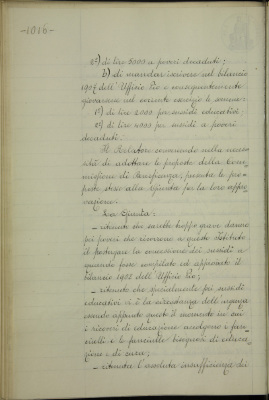 -1016-
2°) di lire 5000 a poveri decaduti;
b) di mandar iscrivere nel bilancio
1907 dell'Ufficio Pio e conseguentemente
giovarsene nel corrente esercizio le somme:
1°) di lire 2000 per sussidi educativi;
2°) di lire 4000 per sussidi a poveri
decaduti.
Il Relatore convenendo nella neces-
sità di adottare le proposte della Com-
missione di Beneficenza, presenta le pro-
poste stesse alla Giunta per la loro appro-
vazione.
La Giunta:
- ritenuto che sarebbe troppo grave danno
pei poveri che ricorrono a questo Istituto
il protrarre la concessione dei sussidi a
quando fosse compilato ed approvato il
bilancio 1907 dell'Ufficio Pio;
- ritenuto che specialmente pei sussidi
educativi vi è la circostanza dell'urgenza
essendo appunto questo il momento in cui
i ricoveri di educazione accolgono i fan-
ciulli e le fanciulle bisognosi di educa-
zione e di cura;
- ritenuta l'assoluta insufficienza dei